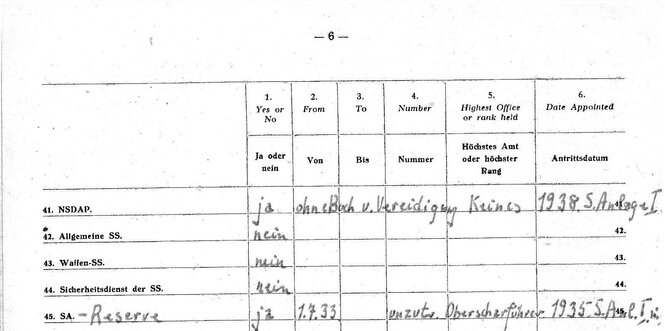 — 6 —
1. 2. 3. 4. 5. 6.
Yes or No From To Number Highest Office or rank held Date Appointed
Ja oder nein Von Bis Nummer Höchstes Amt oder höchster Rang Antrittsdatum
41. NSDAP. ja ohne Buch u. Vereidigung Keines 1938. S. Anlage I. 41.
42. Allgemeine SS. nein 42.
43. Waffen-SS. nein 43.
44. Sicherheitsdienst der SS. nein 44.
45. SA. - Reserve ja 1.7.33. Oberscharführer 1935 S. Anl. I 45.